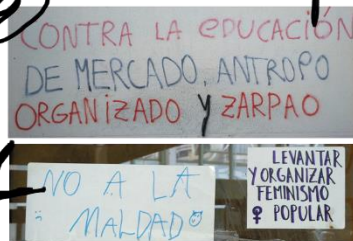 CONTRA LA EDUCACIÓN
DE MERCADO, ANTROPO
ORGANIZADO Y ZARPAO
NO A LA
MALDAD
LEVANTAR
Y ORGANIZAR
FEMINISMO
POPULAR